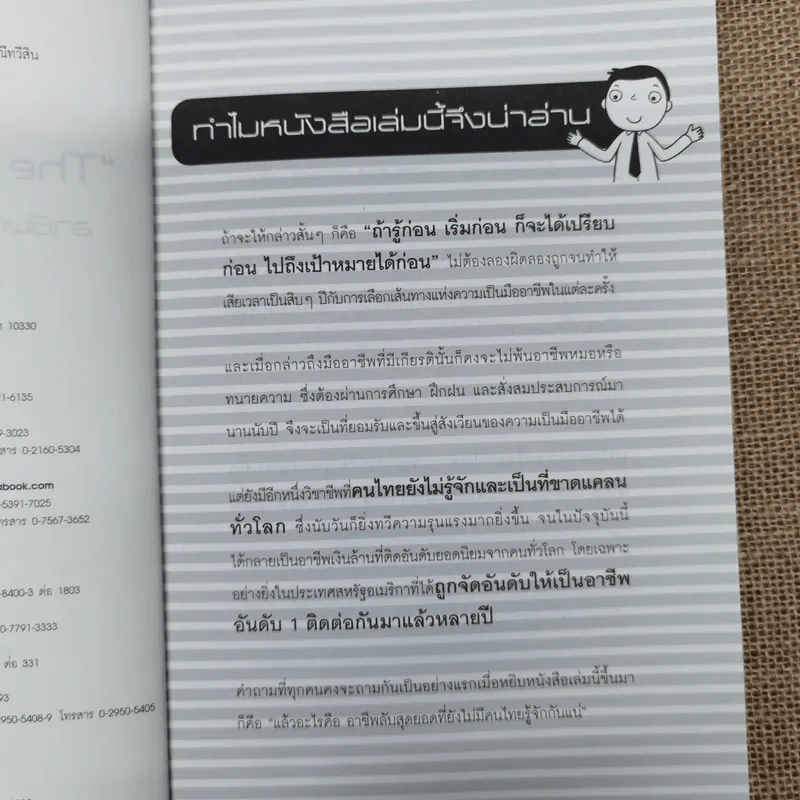 ณีทวีสิน
"The
10330
21-6135
9-3023
สาร 0-2160-5304
abook.com
-5391-7025
ทรสาร 0-7567-3652
-8400-3 ต่อ 1803
0-7791-3333
ต่อ 331
93
950-5408-9 โทรสาร 0-2950-5405
ทำไมหนังสือเล่มนี้จึงน่าอ่าน
ถ้าจะให้กล่าวสั้นๆ ก็คือ "ถ้ารู้ก่อน เริ่มก่อน ก็จะได้เปรียบ
ก่อน ไปถึงเป้าหมายได้ก่อน" ไม่ต้องลองผิดลองถูกจนทำให้
เสียเวลาเป็นสิบๆ ปีกับการเลือกเส้นทางแห่งความเป็นมืออาชีพในแต่ละครั้ง
และเมื่อกล่าวถึงมืออาชีพที่มีเกียรตินั้นก็คงจะไม่พ้นอาชีพหมอหรือ
ทนายความ ซึ่งต้องผ่านการศึกษา ฝึกฝน และสั่งสมประสบการณ์มา
นานนับปี จึงจะเป็นที่ยอมรับและขึ้นสู่สังเวียนของความเป็นมืออาชีพได้
แต่ยังมีอีกหนึ่งวิชาชีพที่คนไทยยังไม่รู้จักและเป็นที่ขาดแคลน
ทั่วโลก ซึ่งนับวันก็ยิ่งทวีความรุนแรงมากยิ่งขึ้น จนในปัจจุบันนี้
ได้กลายเป็นอาชีพเงินล้านที่ติดอันดับยอดนิยมจากคนทั่วโลก โดยเฉพาะ
อย่างยิ่งในประเทศสหรัฐอเมริกาที่ได้ถูกจัดอันดับให้เป็นอาชีพ
อันดับ 1 ติดต่อกันมาแล้วหลายปี
คำถามที่ทุกคนคงจะถามกันเป็นอย่างแรกเมื่อหยิบหนังสือเล่มนี้ขึ้นมา
ก็คือ "แล้วอะไรคือ อาชีพลับสุดยอดที่ยังไม่มีคนไทยรู้จักกันแน่"